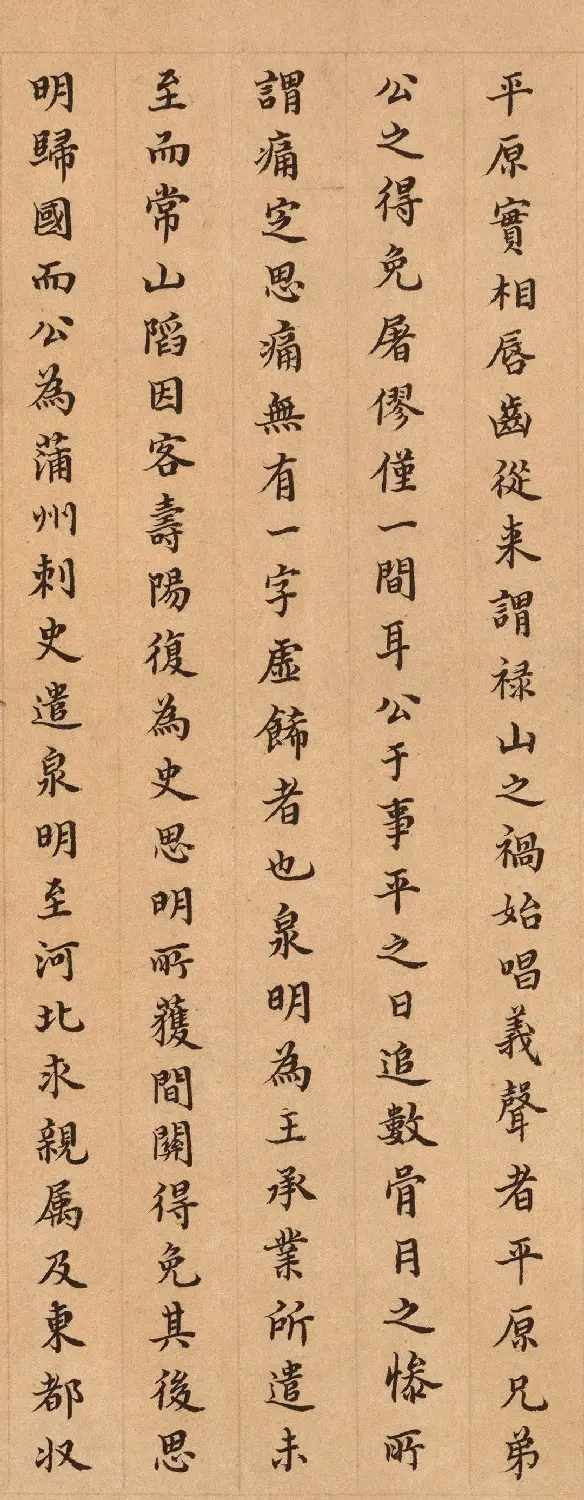 平原實相唇齒從来謂禄山之禍始唱義聲者平原兄弟
公之得免屠僇僅一間耳公于事平之日追數骨月之慘所
謂痛定思痛無有一字虛飾者也泉明為王承業所遣未
至而常山陷因客壽陽復為史思明所獲間關得免其後思
明歸國而公為蒲州刺史遣泉明至河北求親属及東都収